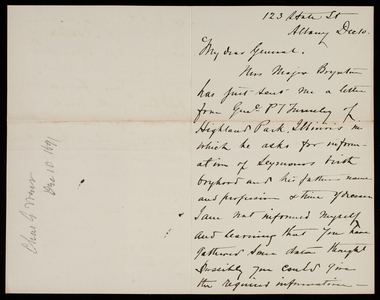 123 State St
Albany Dec 10.
My dear General.
Mrs Major Boynton
has just sent me a letter
from Genl P T Turnley of
Highland Park, Illinois in
which he asks for inform-
ation of Seymours birth
boyhood and his fathers name
and profession & time of decease
I am not informed myself
and learning that you have
gathered some data thought
possibly you could give
the required information —
Dec 10 1891